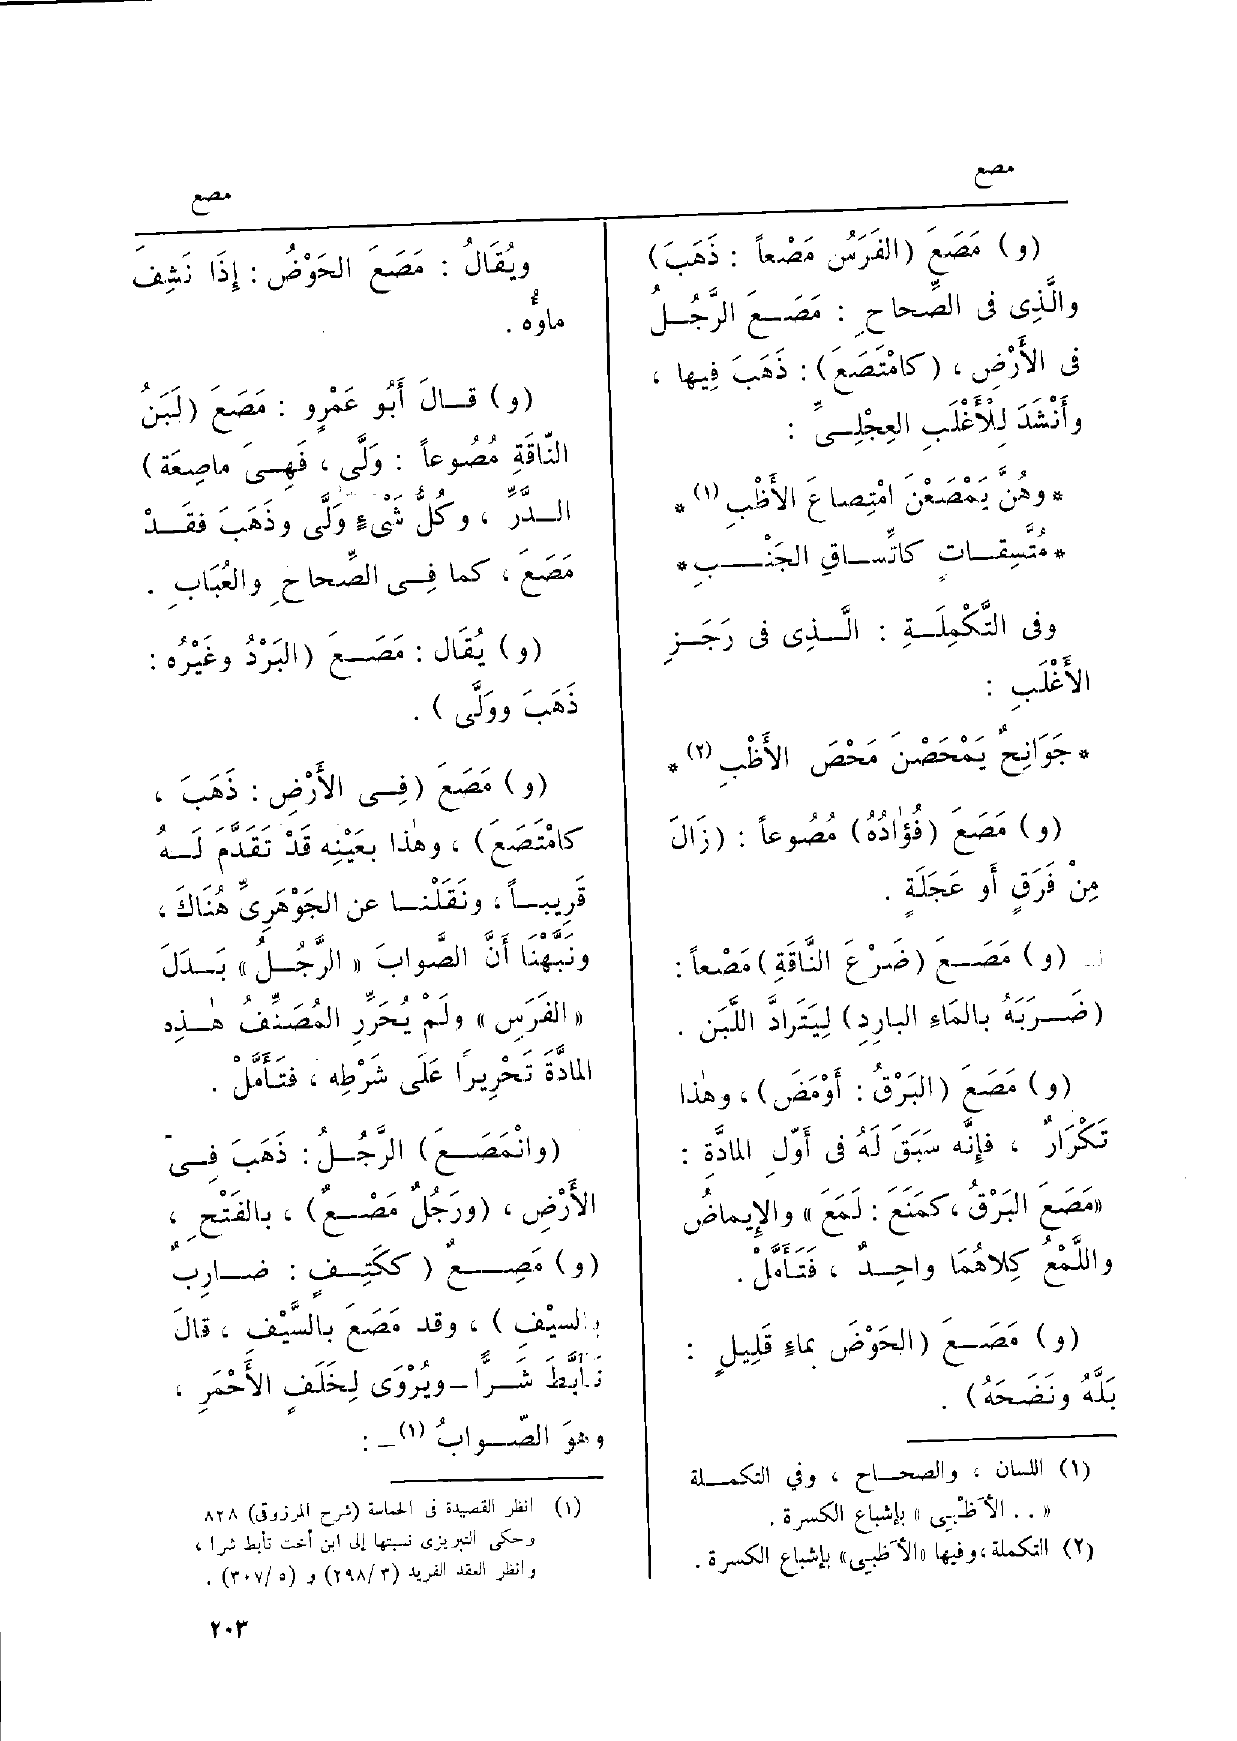 مصع
مصع
(و) مَصَعَ (الفَرَسُ مَصْعاً : ذَهَبَ)
والَّذِى فى الصِّحاحِ : مَصَعَ الرَّجُلُ
فى الأَرْضِ ، (كامْتَصَعَ) : ذَهَبَ فِيها ،
وأَنْشَدَ لِلْأَغْلَبِ العِجْلِىِّ :
* وهُنَّ يَمْصَعْنَ امْتِصاعَ الأَظْبِ (١) *
* مُتَّسِقاتٍ كاتِّساقِ الجَنْبِ *
وفى التَّكْمِلَةِ : الَّذِى فى رَجَزِ
الأَغْلَبِ :
* جَوَانِحٌ يَمْحَصْنَ مَحْصَ الأَظْبِ (٢) *
(و) مَصَعَ (فُؤَادُهُ) مُصُوعاً : (زَالَ
مِنْ فَرَقٍ أو عَجَلَةٍ .
(و) مَصَعَ (ضَرْعَ النَّاقَةِ) مَصْعاً :
(ضَرَبَهُ بالمَاءِ البارِدِ) لِيَتَرادَّ اللَّبَن .
(و) مَصَعَ (البَرْقُ : أَوْمَضَ) ، وهٰذا
تَكْرَارٌ ، فإِنَّه سَبَقَ لَهُ فى أَوّلِ المادَّةِ :
«مَصَعَ البَرْقُ ، كمَنَعَ : لَمَعَ » والإِيماضُ
واللَّمْعُ كِلاهُمَا واحِدٌ ، فَتَأَمَّلْ .
(و) مَصَعَ (الحَوْضَ بماءٍ قَلِيلٍ :
بَلَّهُ ونَضَحَهُ) .
(١) اللسان ، والصحاح ، وفي التكملة
« . . الأَظْبِى » بإشباع الكسرة .
(٢) التكملة ، وفيها «الأَظبِى» بإشباع الكسرة .
ويُقَالُ : مَصَعَ الحَوْضُ : إِذَا نَشِفَ
ماؤُه .
(و) قالَ أَبُو عَمْرٍو : مَصَعَ (لَبَنُ
النَّاقَةِ مُصُوعاً : وَلَّى ، فَهِىَ ماصِعَة)
الدَّرِّ ، وكُلُّ شَىْءٍ وَلَّى وذَهَبَ فقَدْ
مَصَعَ ، كما فِى الصِّحاحِ والعُبَابِ .
(و) يُقَال : مَصَعَ (البَرْدُ وغَيْرُه :
ذَهَبَ ووَلَّى ) .
(و) مَصَعَ (فِى الأَرْضِ : ذَهَبَ ،
كامْتَصَعَ) ، وهٰذا بعَيْنِه قَدْ تَقَدَّمَ لَهُ
قَرِيباً ، ونَقَلْنا عن الجَوْهَرِىِّ هُنَاكَ ،
ونَبَّهْنَا أَنَّ الصَّوابَ « الرَّجُلُ » بَدَلَ
« الفَرَسِ » ولَمْ يُحَرِّرِ المُصَنِّفُ هٰذِه
المادَّةَ تَحْرِيرًا عَلَى شَرْطِه ، فتَأَمَّلْ .
(وانْمَصَعَ) الرَّجُلُ : ذَهَبَ فِى
الأَرْضِ ، (ورَجُلٌ مَصْعٌ) ، بالفَتْحِ ،
(و) مَصِعٌ ( ككَتِفٍ : ضارِبٌ
بالسيْفِ ) ، وقد مَصَعَ بالسَّيْفِ ، قالَ
تَأَبَّطَ شَرًّا – ويُرْوَى لِخَلَفٍ الأَحْمَرِ ،
وهوَ الصّوابُ (١) – :
(١) انظر القصيدة فى الحماسة (شرح المرزوقى) ٨٢٨
وحكى التبريزى نسبتها إلى ابن أخت تأبط شرا ،
وانظر العقد الفريد (٣/٢٩٨) و (٥/٣٠٧) .
٢٠٣